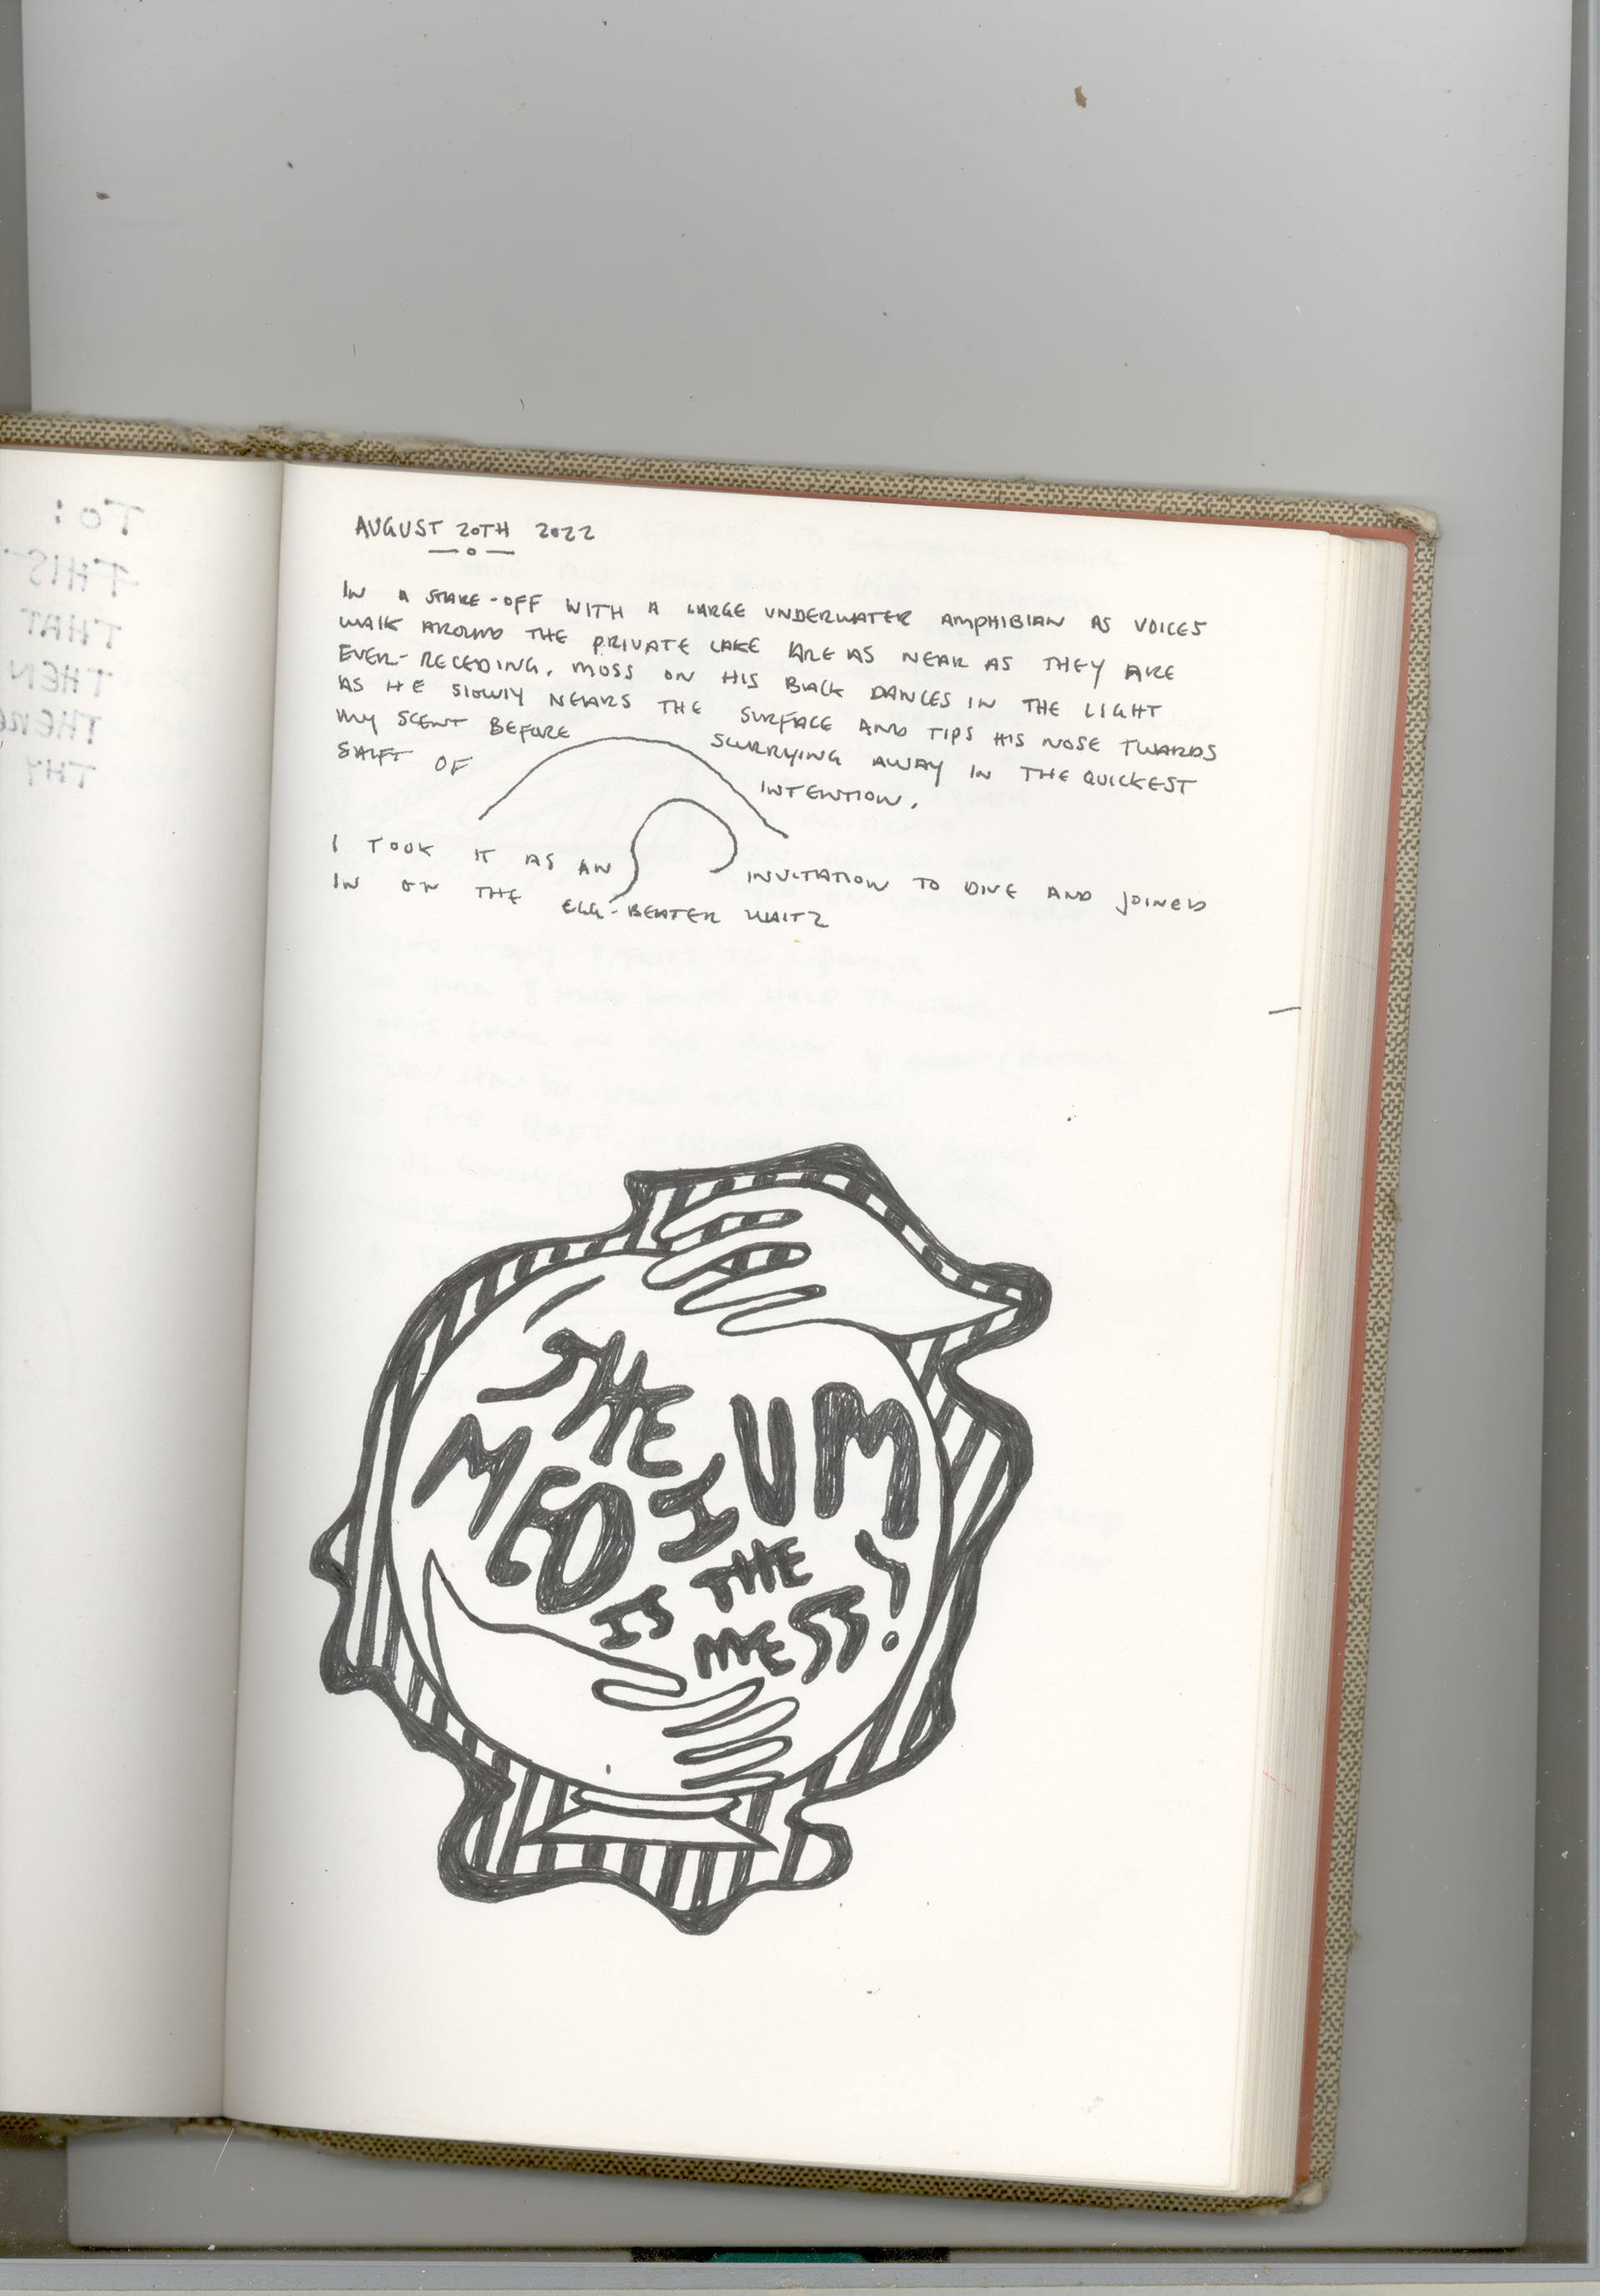 To:
THIS
THAT
THEN
THY
AUGUST 20TH 2022
IN A STARE-OFF WITH A LARGE UNDERWATER AMPHIBIAN AS VOICES
WALK AROUND THE PRIVATE LAKE ARE AS NEAR AS THEY ARE
EVER-RECEDING. MOSS ON HIS BACK DANCES IN THE LIGHT
AS HE SLOWLY NEARS THE SURFACE AND TIPS HIS NOSE TWARDS
MY SCENT BEFORE SCURRYING AWAY IN THE QUICKEST
OF INTENTION.
I TOOK IT AS AN INVITATION TO DIVE AND JOINED
IN ON THE EGG-BEATER WALTZ
THE
MEDIUM
IS THE
MESS!